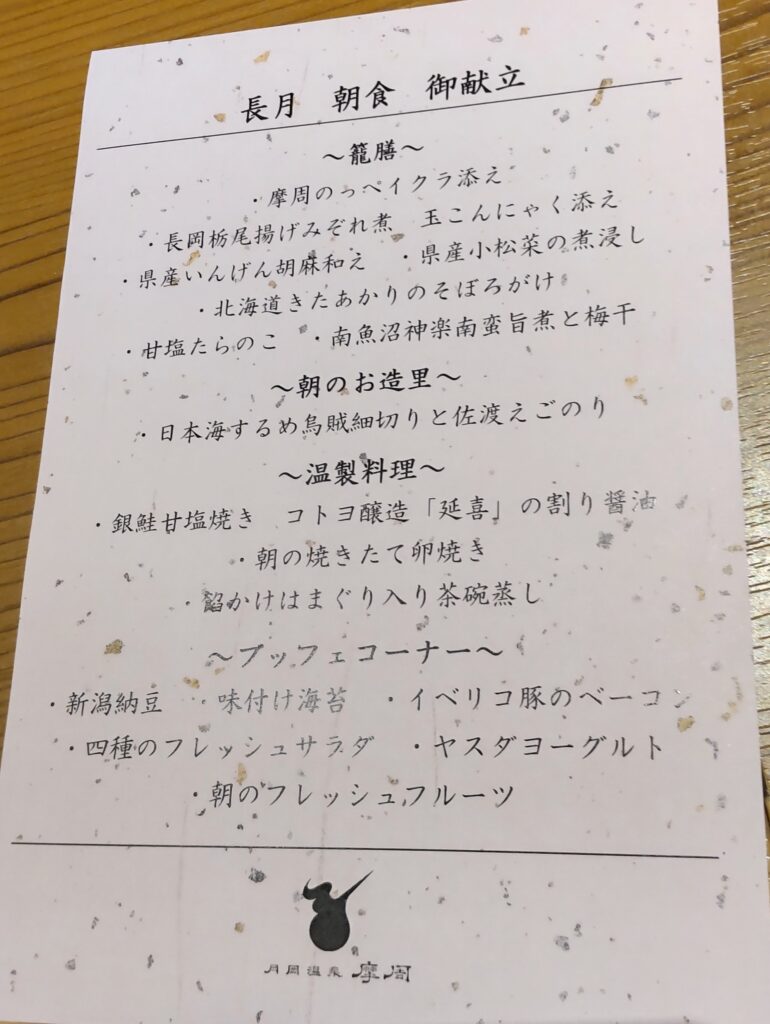 長月　朝食　御献立
～籠膳～
・摩周のっペイクラ添え
・長岡栃尾揚げみぞれ煮　玉こんにゃく添え
・県産いんげん胡麻和え　・県産小松菜の煮浸し
・北海道きたあかりのそぼろがけ
・甘塩たらのこ　・南魚沼神楽南蛮旨煮と梅干
～朝のお造里～
・日本海するめ烏賊細切りと佐渡えごのり
～温製料理～
・銀鮭甘塩焼き　コトヨ醸造「延喜」の割り醤油
・朝の焼きたて卵焼き
・餡かけはまぐり入り茶碗蒸し
～ブッフェコーナー～
・新潟納豆　・味付け海苔　・イベリコ豚のベーコン
・四種のフレッシュサラダ　・ヤスダヨーグルト
・朝のフレッシュフルーツ
月岡温泉 摩周